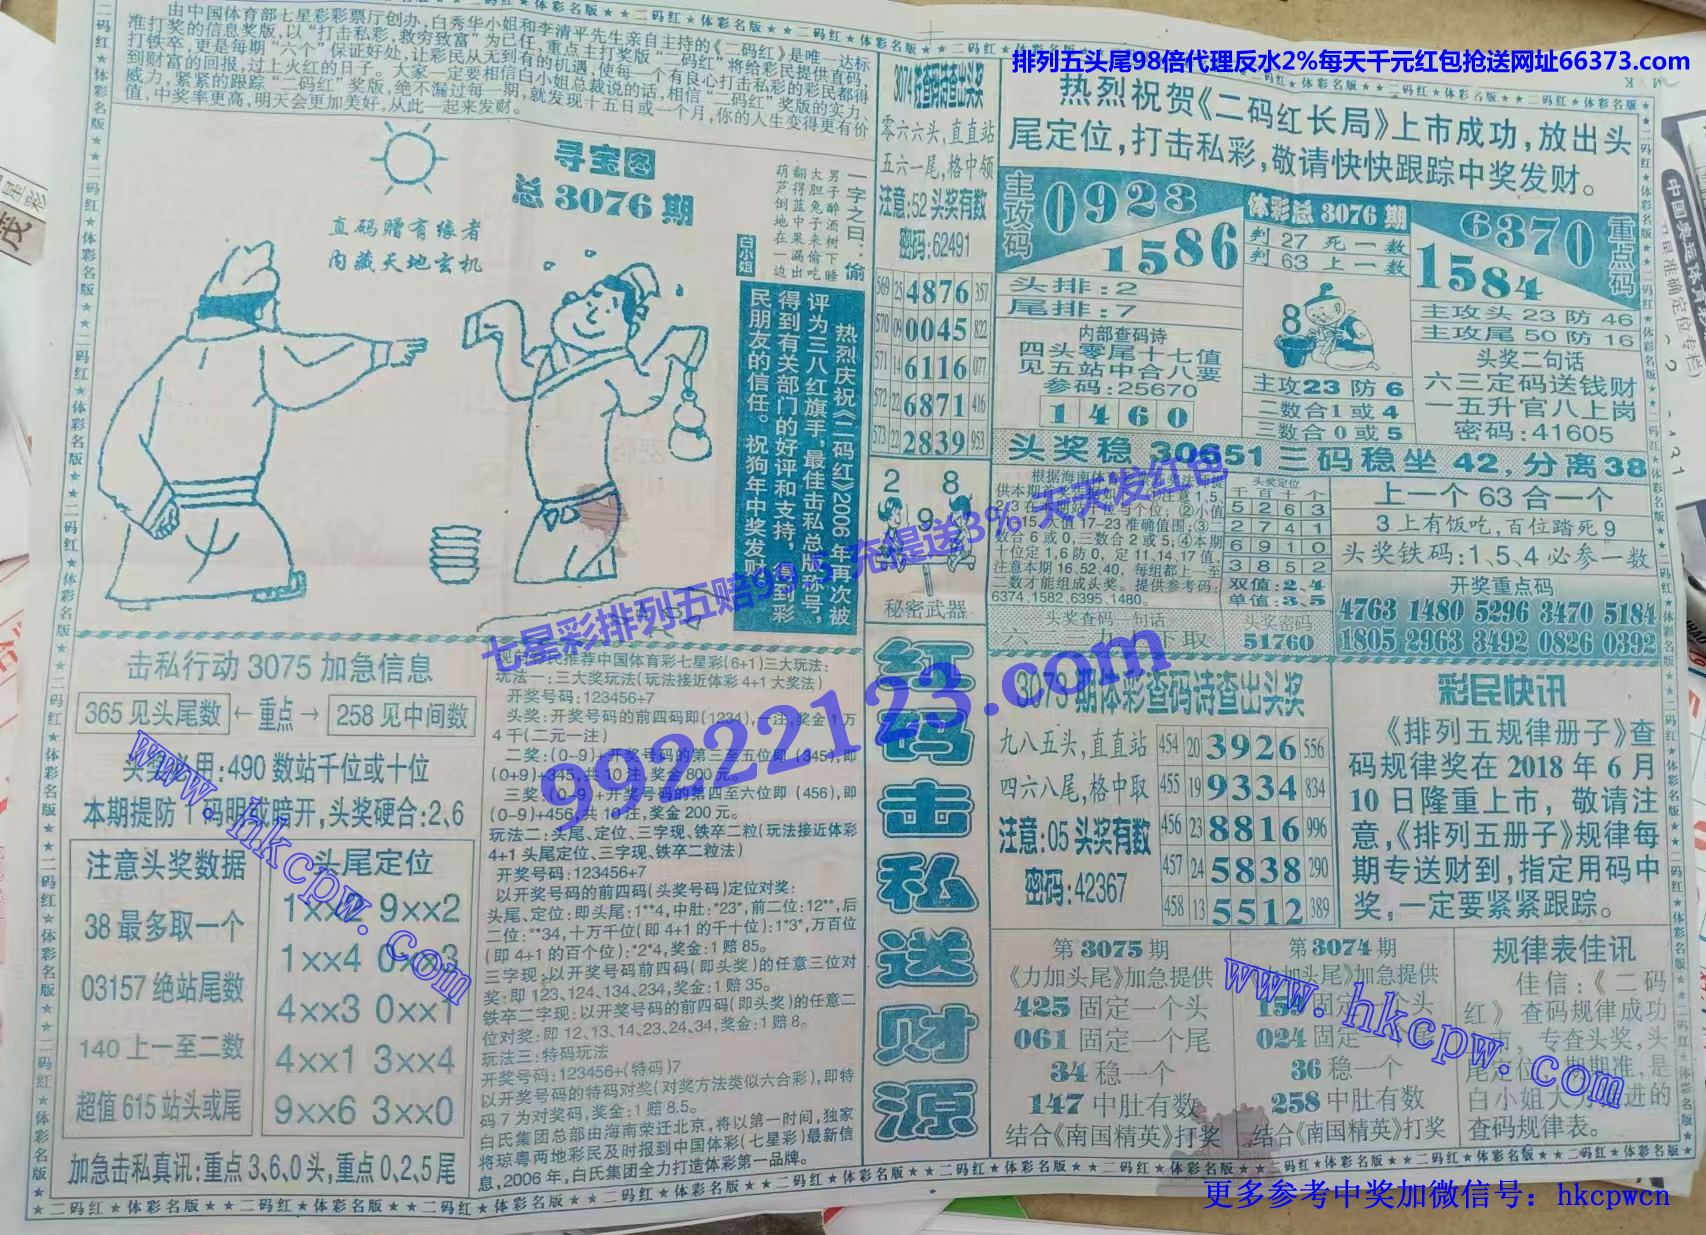 排列五头尾98倍代理反水2%每天千元红包抢送网址66373.com
由中国体育部七星彩彩票厅创办,白秀华小姐和李清平先生亲自主持的《二码红》是唯一达标
准打奖的信息奖版,以“打击私彩,救穷致富”为已任,重点主打奖版“二码红”将给彩民提供直码,
打铁卒,更是每期“六个”保证好处,让彩民从无到有的机遇,使每一个有良心打击私彩的彩民都得
到财富的回报,过上火红的日子。大家一定要相信白小姐总裁说的话,相信“二码红”奖版的实力、
威力,紧紧的跟踪“二码红”奖版,绝不漏过每一期,就发现十五日或一个月,你的人生变得更有价
值,中奖率更高,明天会更加美好,从此一起来发财。
寻宝图
总 3076 期
直码赠有缘者
内藏天地玄机
一字之曰:偷
男子醉酒树下睡
大胆兔子来偷吃
翻得蓝中果漏出
葫芦倒地在一边
白小姐
热烈庆祝《二码红》2006年再次被
评为三八红旗手,最佳击私总版称号,
得到有关部门的好评和支持,得到彩
民朋友的信任。祝狗年中奖发财
零六六头,直直站
五六一尾,格中领
注意:52 头奖有数
密码:62491
569 25 4876 357
570 09 0045 822
571 14 6116 077
572 22 6871 416
573 22 2839 953
2 8
9
秘密武器
热烈祝贺《二码红长局》上市成功,放出头
尾定位,打击私彩,敬请快快跟踪中奖发财。
主攻码
0923
1586
体彩总 3076 期
判 27 死一数
判 63 上一数
6370
1584
重点码
头排:2
尾排:7
内部查码诗
四头零尾十七值
见五站中合八要
参码:25670
1460
8
主攻23防6
二数合1或4
三数合0或5
主攻头 23 防 46
主攻尾 50 防 16
头奖二句话
六三定码送钱财
一五升官八上岗
密码:41605
头奖稳 30651 三码稳坐 42,分离38
注意本期 16,52,40,每组都上一至
二数才能组成头奖。提供参考码:
6374,1582,6395,1480。
头奖定位
千百十个
5263
2741
6910
3852
双值:2、4
单值:3、5
头奖查码一句话
头奖密码
51760
上一个 63 合一个
3上有饭吃,百位踏死9
头奖铁码:1、5、4 必参一数
开奖重点码
4763 1480 5296 3470 5184
1805 2963 3492 0826 0392
七星彩排列五赔99.5 充提送3% 天天发红包
99222123.com
击私行动 3075 加急信息
365 见头尾数 ← 重点 → 258 见中间数
用:490 数站千位或十位
头奖硬合:2、6
注意头奖数据
38 最多取一个
03157 绝站尾数
140 上一至二数
超值 615 站头或尾
头尾定位
1××2 9××2
1××4 0××3
4××3 0××1
4××1 3××4
9××6 3××0
加急击私真讯:重点3、6、0头,重点0、2、5尾
民推荐中国体育彩七星彩(6+1)三大玩法:
玩法一:三大奖玩法(玩法接近体彩 4+1 大奖法)
开奖号码:123456+7
头奖:开奖号码的前四码即(1234),一注,奖金1万
4千(二元一注)
二奖:(0-9)+开奖号码的第三至五位即 (345),即
(0+9)+345,共 10 注,奖金 800 元。
三奖:(0-9)+开奖号码的第四至六位即 (456),即
(0-9)+456,共 10 注,奖金 200 元。
玩法二:头尾、定位、三字现、铁卒二粒(玩法接近体彩
4+1 头尾定位、三字现、铁卒二粒法)
开奖号码:123456+7
以开奖号码的前四码(头奖号码)定位对奖:
头尾、定位:即头尾:1**4,中肚:*23*,前二位:12**,后
二位:**34,十万千位(即 4+1 的千十位):1*3*,万百位
(即 4+1 的百个位):*2*4,奖金:1 赔 85。
三字现:以开奖号码前四码(即头奖)的任意三位对
奖:即 123、124、134、234,奖金:1 赔 35。
铁卒二字现:以开奖号码的前四码(即头奖)的任意二
位对奖:即 12、13、14、23、24、34,奖金:1 赔 8。
玩法三:特码玩法
开奖号码:123456+(特码)7
以开奖号码的特码对奖(对奖方法类似六合彩),即特
码 7 为对奖码,奖金:1 赔 8.5。
白氏集团总部由海南荣迁北京,将以第一时间,独家
将琼粤两地彩民及时报到中国体彩(七星彩)最新信
息,2006 年,白氏集团全力打造体彩第一品牌。
红码击私送财源
期体彩查码诗查出头奖
九八五头,直直站
四六八尾,格中取
注意:05 头奖有数
密码:42367
454 20 3926 556
455 19 9334 834
456 23 8816 996
457 24 5838 290
458 13 5512 389
彩民快讯
《排列五规律册子》查
码规律奖在 2018 年 6 月
10 日隆重上市,敬请注
意,《排列五册子》规律每
期专送财到,指定用码中
奖,一定要紧紧跟踪。
第 3075 期
《力加头尾》加急提供
425 固定一个头
061 固定一个尾
34 稳一个
147 中肚有数
结合《南国精英》打奖
第 3074 期
力加头尾》加急提供
024 固定
36 稳一个
258 中肚有数
结合《南国精英》打奖
规律表佳讯
佳信:《二码
红》查码规律成功
专查头奖,头
查码规律表。
www.hkcpw.com
www.hkcpw.com
二码红★体彩名版★
更多参考中奖加微信号：hkcpwcn